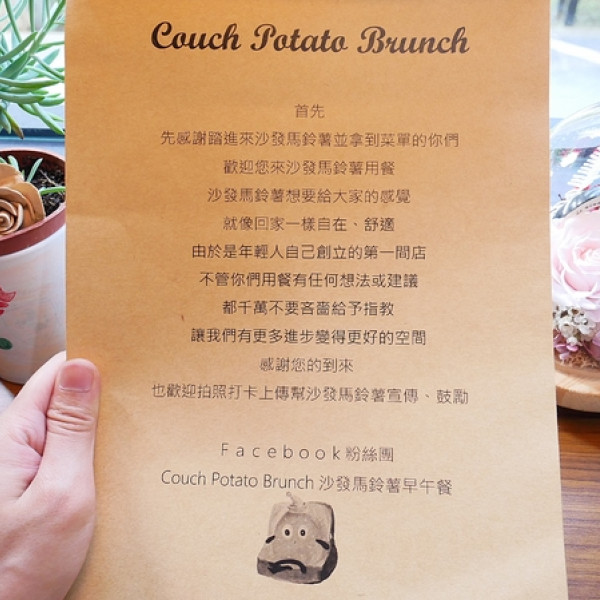 Couch Potato Brunch
首先
先感謝踏進來沙發馬鈴薯並拿到菜單的你們
歡迎您來沙發馬鈴薯用餐
沙發馬鈴薯想要給大家的感覺
就像回家一樣自在、舒適
由於是年輕人自己創立的第一間店
不管你們用餐有任何想法或建議
都千萬不要吝嗇給予指教
讓我們有更多進步變得更好的空間
感謝您的到來
也歡迎拍照打卡上傳幫沙發馬鈴薯宣傳、鼓勵
Facebook粉絲團
Couch Potato Brunch 沙發馬鈴薯早午餐